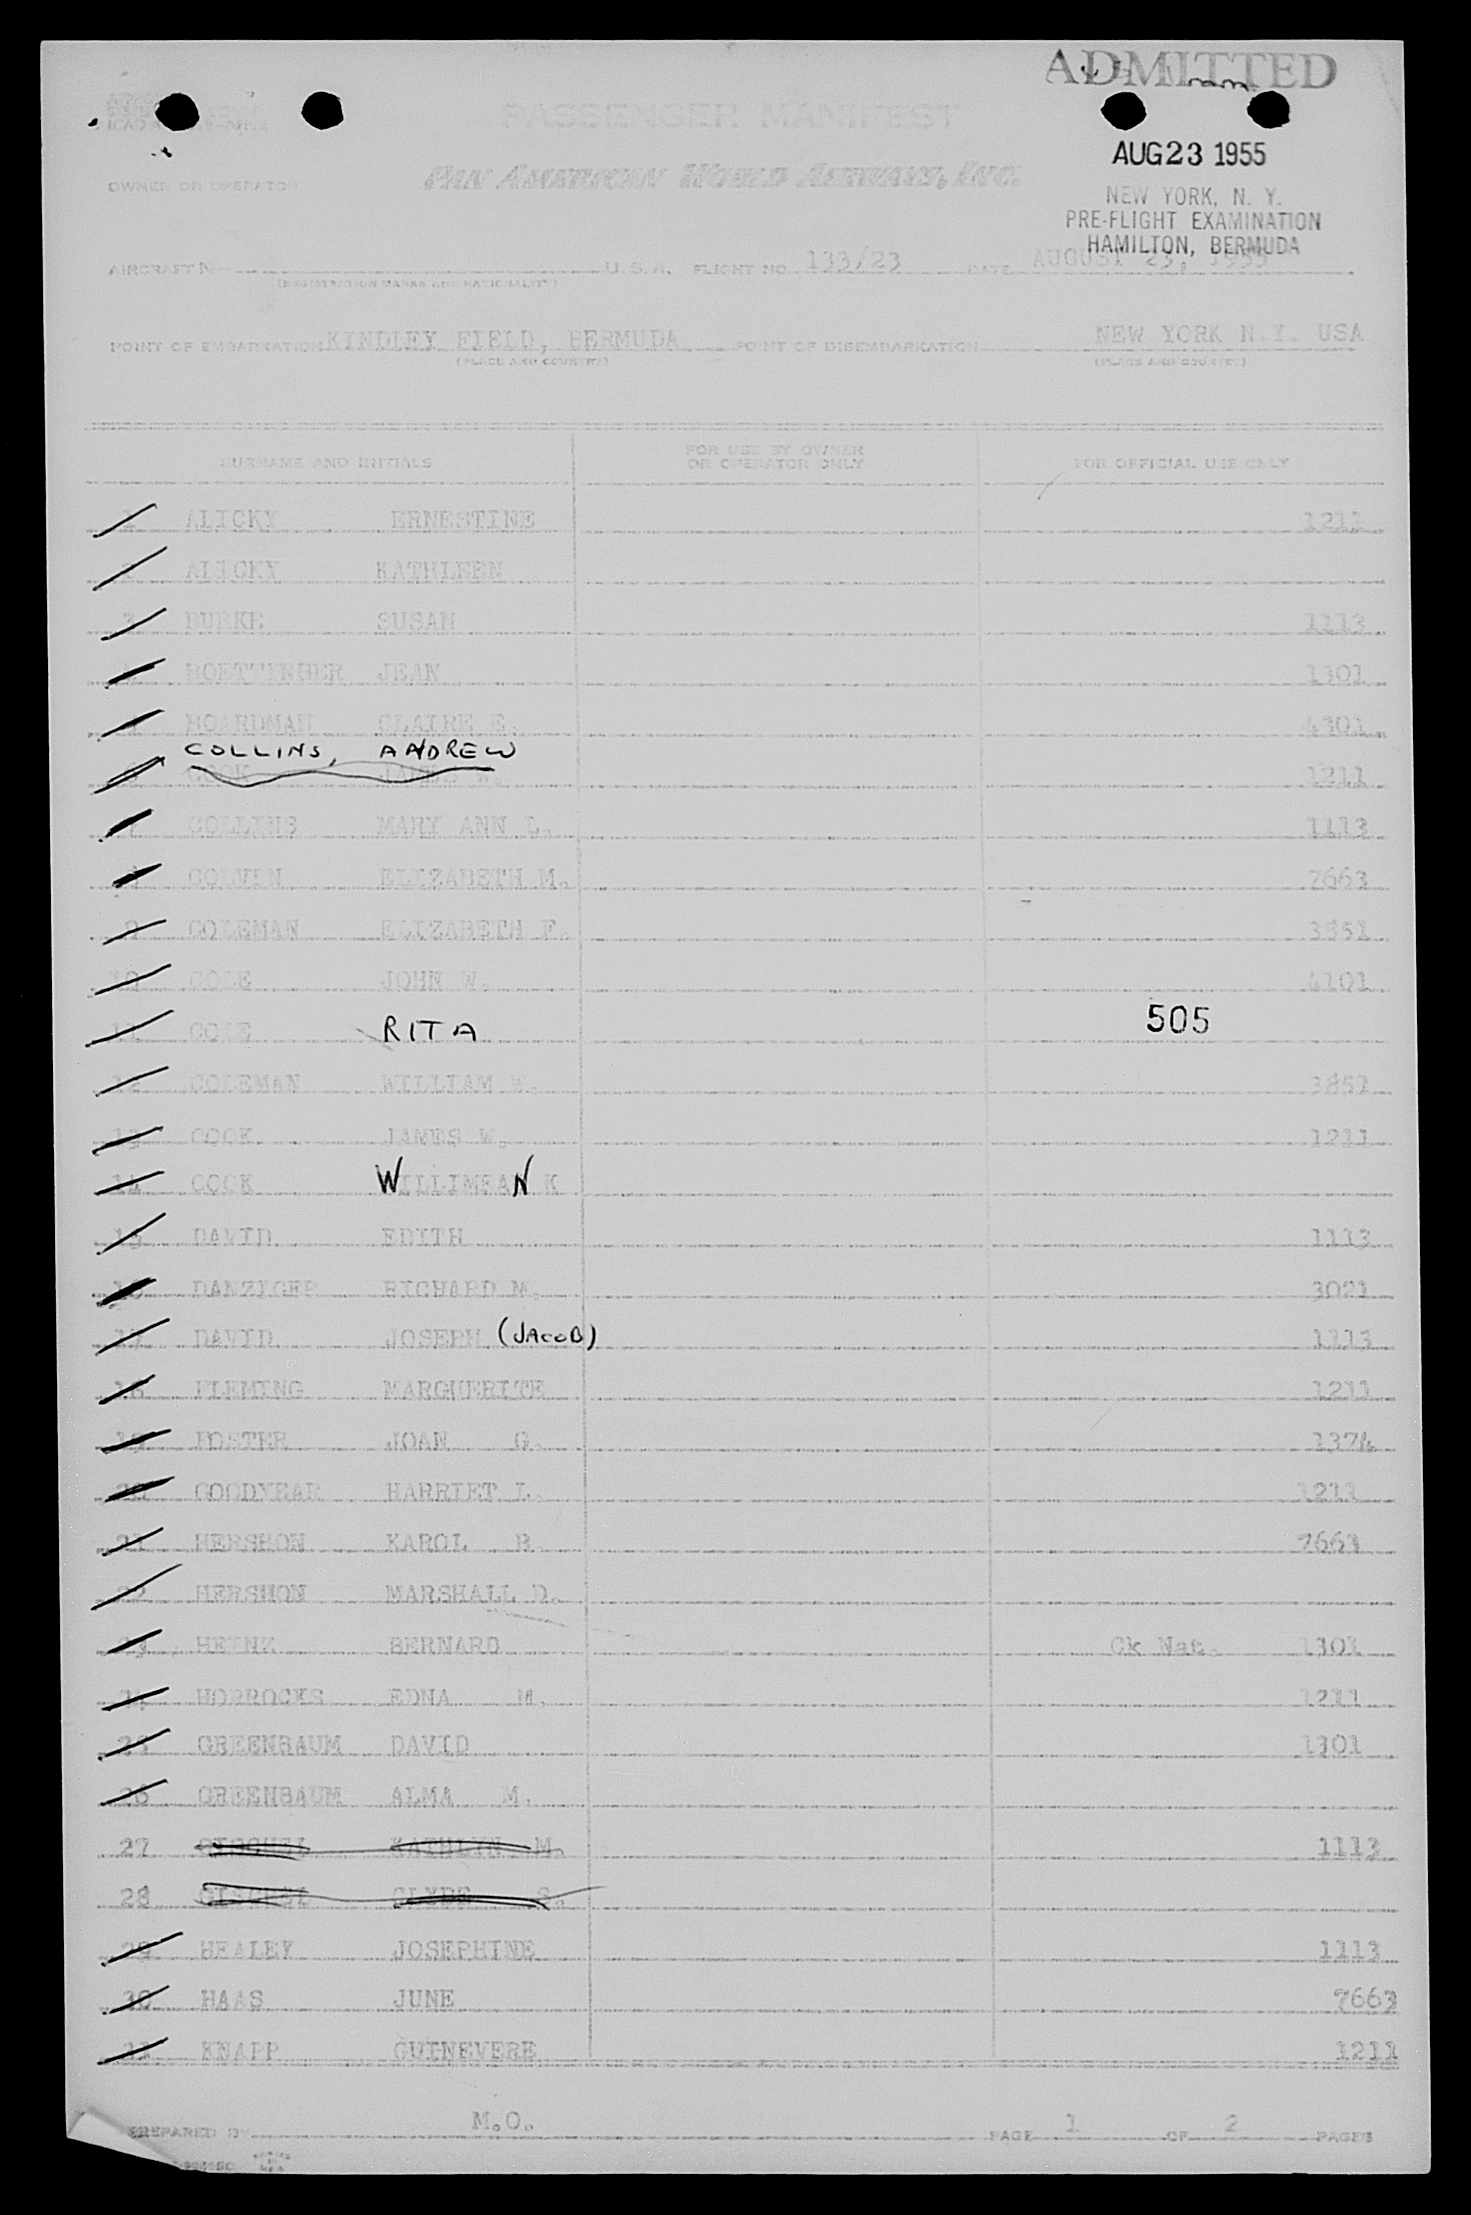 ADMITTED
PASSENGER MANIFEST
AUG 23 1955
OWNER OR OPERATOR PAN AMERICAN WORLD AIRWAYS, INC.
NEW YORK, N. Y.
PRE-FLIGHT EXAMINATION
HAMILTON, BERMUDA
AIRCRAFT N U.S.A. FLIGHT NO. 133/23 DATE AUGUST 23, 1955
(REGISTRATION MARKS AND NATIONALITY)
POINT OF EMBARKATION KINDLEY FIELD, BERMUDA POINT OF DISEMBARKATION NEW YORK N.Y. USA
(PLACE AND COUNTRY) (PLACE AND COUNTRY)
SURNAME AND INITIALS FOR USE BY OWNER OR OPERATOR ONLY FOR OFFICIAL USE ONLY
1 ALICKY ERNESTINE 1211
2 ALICKY KATHLEEN
3 BURKE SUSAN 1113
BOETTINGER JEAN 1301
BOARDMAN CLAIRE E. 4301
COLLINS, ANDREW
COOK JAMES W. 1211
7 COLLINS MARY ANN L. 1113
COLVIN ELIZABETH M. 7663
9 COLEMAN ELIZABETH F. 3851
10 COLE JOHN W. 4101
11 COLE RITA 505
12 COLEMAN WILLIAM W. 3851
13 COOK JAMES W. 1211
14 COOK WILLIMEAN K
15 DAVID EDITH 1113
16 DANZIGER RICHARD M. 3021
17 DAVID JOSEPH (JACOB) 1113
18 FLEMING MARGUERITE 1211
19 FOSTER JOAN G. 1374
20 GOODYEAR HARRIET L. 1211
21 HERSHON KAROL B 7663
22 HERSHON MARSHALL D.
23 HEINZ BERNARD Ck Nat. 1301
24 HORROCKS EDNA M. 1211
25 GREENBAUM DAVID 1301
26 GREENBAUM ALMA M.
27 KATHLYN M. 1113
28 CLYDE S.
29 HEALEY JOSEPHINE 1113
30 HAAS JUNE 7663
31 KNAPP GUINEVERE 1211
PREPARED BY M.O. PAGE 1 OF 2 PAGES